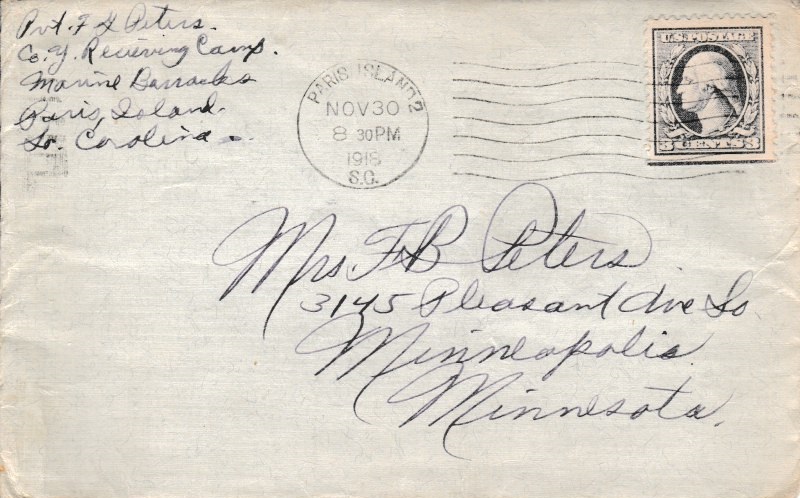 Pvt. F H Peters.
Co. Y. Recieving Camp.
Marine Barracks
Paris, Island.
So. Carolina.
PARIS ISLAND
NOV 30
8 30 PM
1918
S.C.
U.S. POSTAGE
3 CENTS 3
Mrs. F B Peters.
3145 Pleasant Ave So.
Minneapolis.
Minnesota.